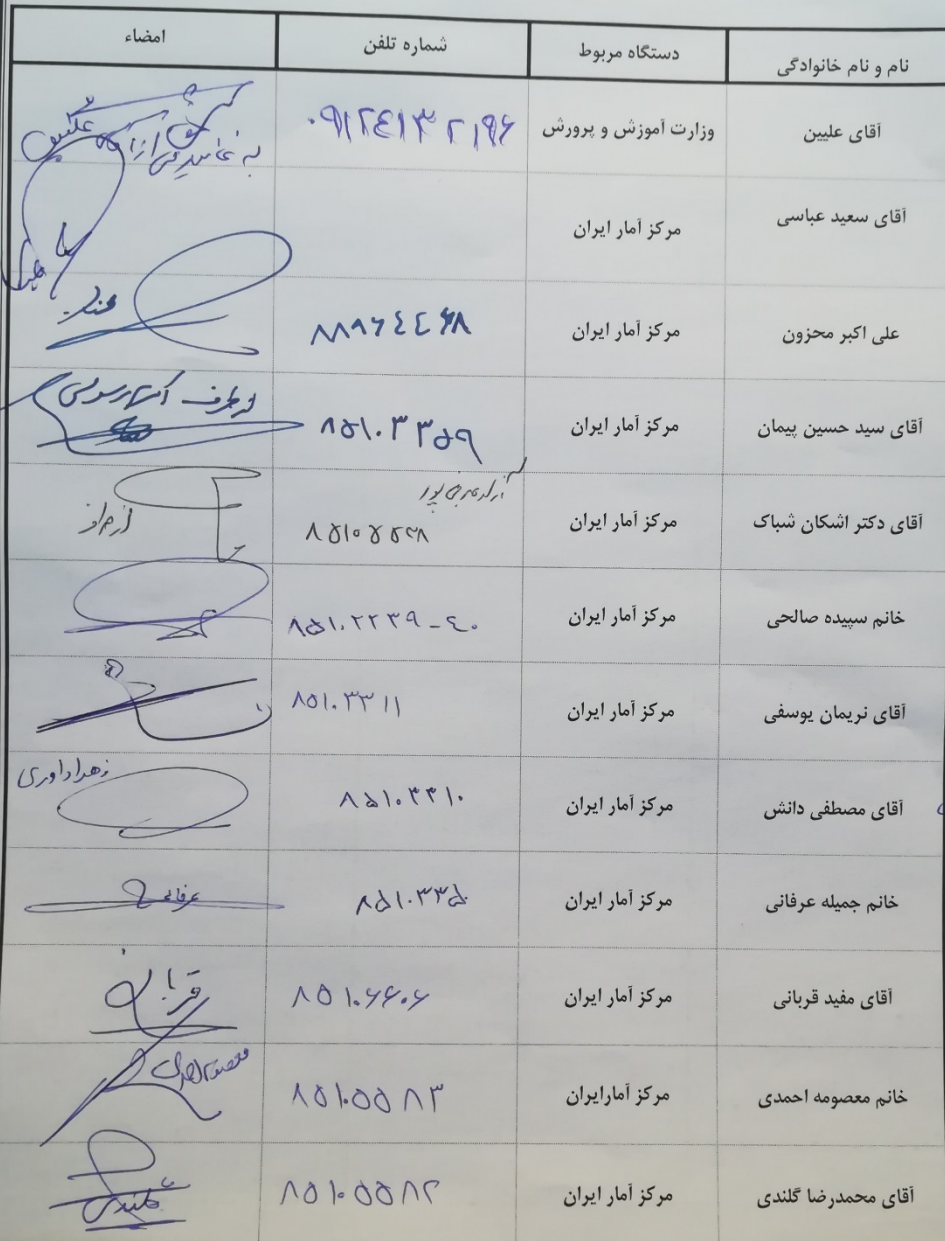 نام و نام خانوادگی دستگاه مربوط شماره تلفن امضاء
آقای علیین وزارت آموزش و پرورش ۰۹۱۲۴۱۳۲۱۹۶
به نمایندگی از آقای علیین
آقای سعید عباسی مرکز آمار ایران
علی اکبر محزون مرکز آمار ایران ۸۸۹۶۴۴۶۸
آقای سید حسین پیمان مرکز آمار ایران ۸۵۱۰۳۳۵۹ از طرف
آقای دکتر اشکان شباک مرکز آمار ایران
خانم سپیده صالحی مرکز آمار ایران ۸۵۱۰۲۲۳۹-۴۰
آقای نریمان یوسفی مرکز آمار ایران ۸۵۱۰۳۳۱۱
آقای مصطفی دانش مرکز آمار ایران ۸۵۱۰۳۳۱۰ زهرا داوری
خانم جمیله عرفانی مرکز آمار ایران ۸۵۱۰۳۳۵ عرفانی
آقای مفید قربانی مرکز آمار ایران ۸۵۱۰۶۶۰۶ قربانی
خانم معصومه احمدی مرکز آمارایران ۸۵۱۰۵۵۸۳ معصومه احمدی
آقای محمدرضا گلندی مرکز آمار ایران ۸۵۱۰۵۵۸۲ گلندی